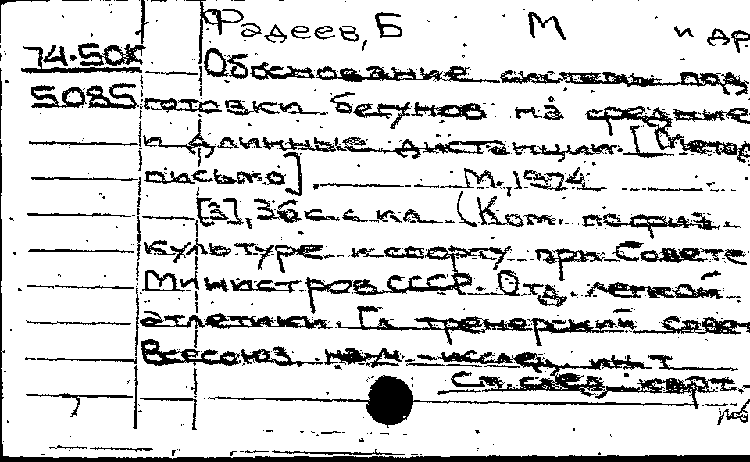 Фадеев, Б М и др
74-50К
Обоснование системы под
5085 готовки бегунов на средние
и длинные дистанции. [Метод
письмо]. М., 1974
[3], 36 с. с ил (Ком. по физ.
культуре и спорту при Совете
Министров СССР. Отд. легкой
атлетики. Гл тренерский совет
Всесоюз. науч-исслед ин-т
См. след карт.